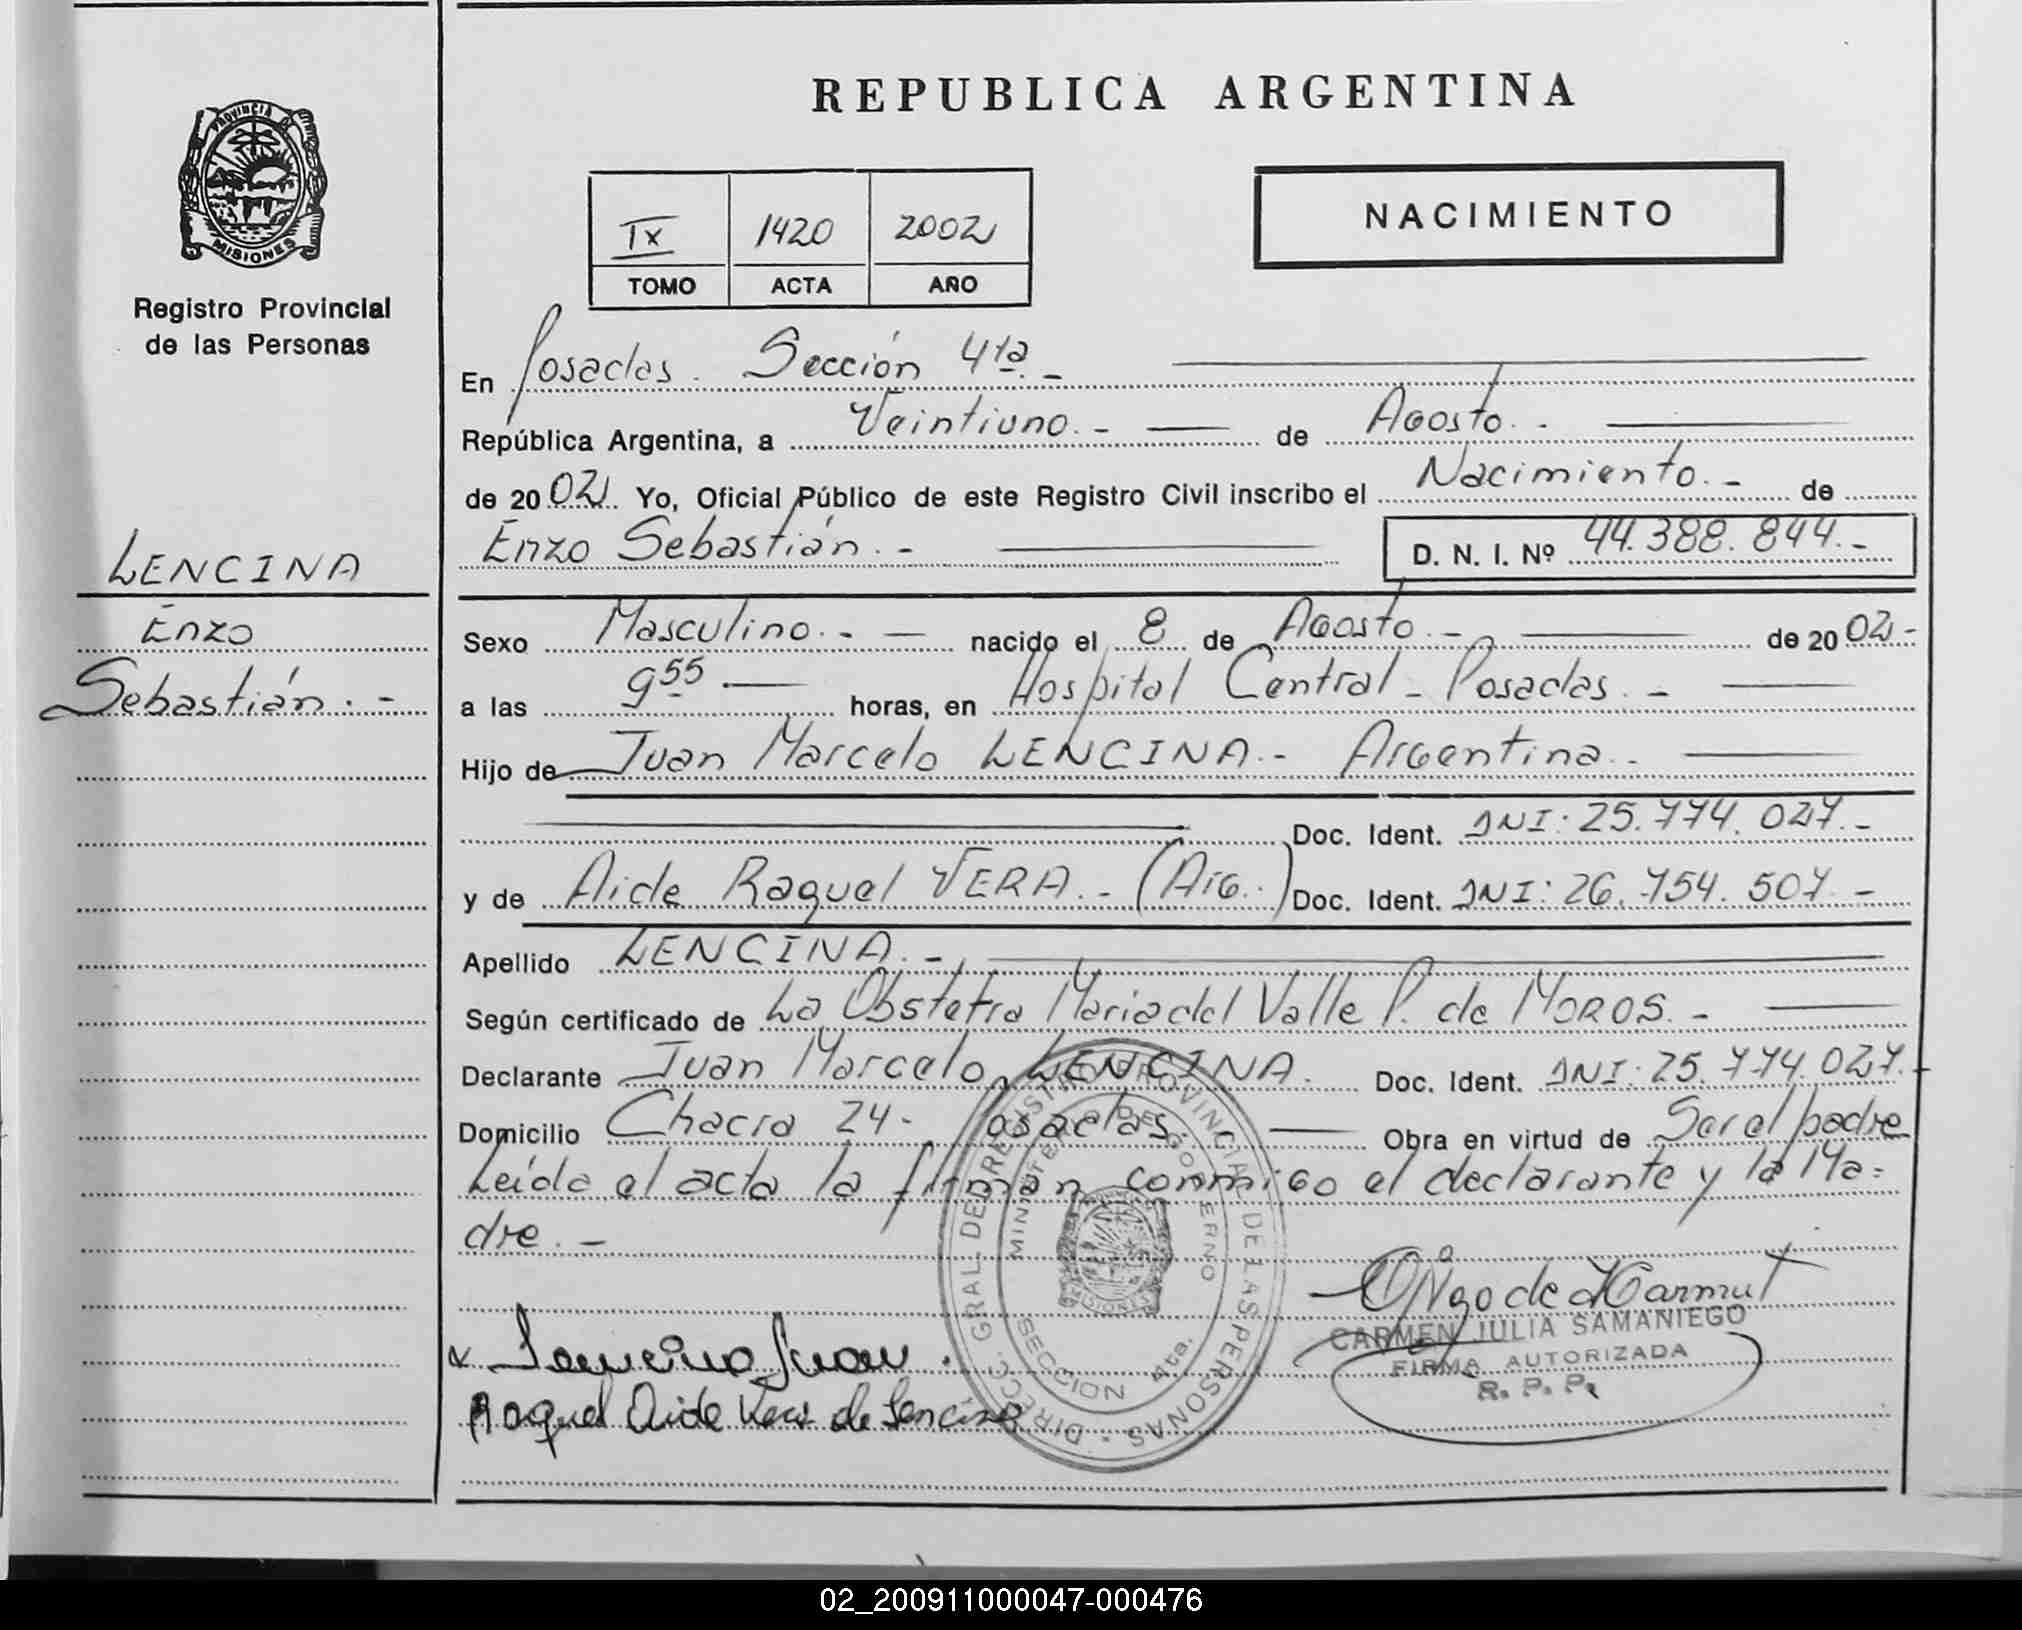 REPUBLICA ARGENTINA
PROVINCIA DE
MISIONES
Registro Provincial
de las Personas
IX 1420 2002
TOMO ACTA AÑO
NACIMIENTO
En Posadas. Sección 4ta.-
República Argentina, a Veintiuno.- de Agosto.-
de 2002 Yo, Oficial Público de este Registro Civil inscribo el Nacimiento.- de
Enzo Sebastián.- D. N. I. Nº 44.388.844.-
LENCINA
Enzo
Sebastián.-
Sexo Masculino.- nacido el 8 de Agosto.- de 2002.-
a las 9 55 horas, en Hospital Central - Posadas.-
Hijo de Juan Marcelo LENCINA.- Argentina.-
Doc. Ident. DNI: 25.774.027.-
y de Aide Raquel VERA.- (Arg.) Doc. Ident. DNI: 26.754.507.-
Apellido LENCINA.-
Según certificado de La Obstetra Maria del Valle P. de MOROS.-
Declarante Juan Marcelo LENCINA. Doc. Ident. DNI: 25.774.027.-
Domicilio Chacra 24- Posadas. Obra en virtud de Ser el padre
Leída el acta la firman conmigo el declarante y la Ma=
dre.-
DIRECC. GRAL. DEL REGISTRO PROVINCIAL DE LAS PERSONAS
MINISTERIO DE GOBIERNO
SECCION 4ta.
MISIONES
CARMEN JULIA SAMANIEGO
FIRMA AUTORIZADA
R. P. P.
Lencina Juan.
Raquel Aide Vera de Lencina
02_200911000047-000476